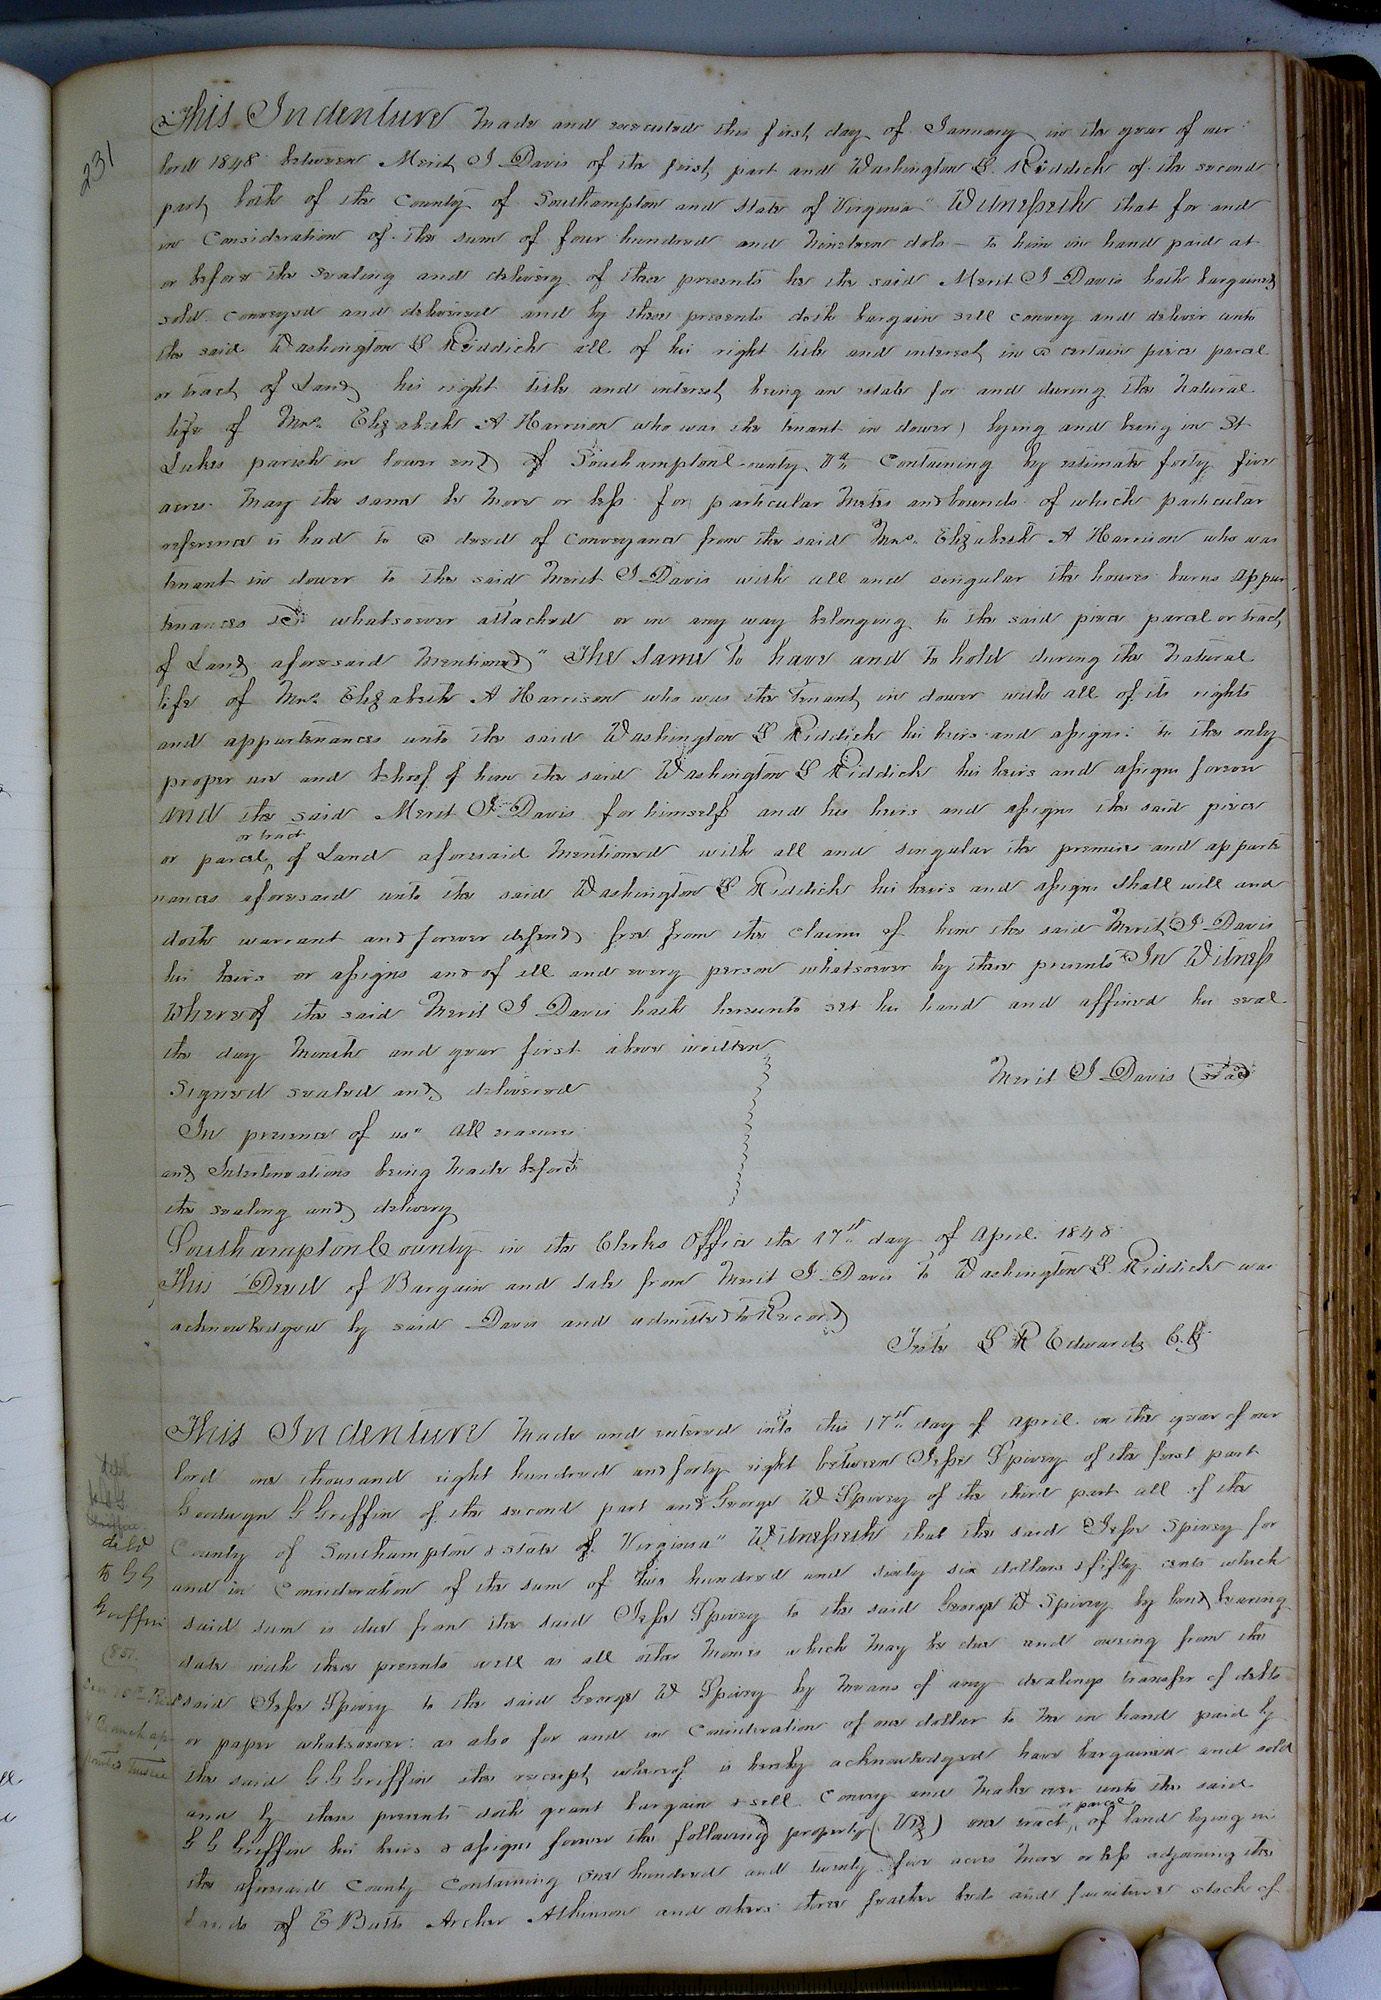 231
This Indenture made and executed this first day of January in the year of our
lord 1848 between Merit J Davis of the first part and Washington S. Riddick of the second
part both of the County of Southampton and State of Virginia" Witnesseth that for and
in Consideration of the sum of four hundred and nineteen dols — to him in hand paid at
or before the sealing and delivery of these presents he the said Merit J Davis hath bargained
sold conveyed and delivered and by these presents doth bargain sell convey and deliver unto
the said Washington S Riddick all of his right title and interest in a certain piece parcel
or tract of Land his right title and interest being an estate for and during the natural
life of Mrs. Elizabeth A Harrison who was the tenant in dower) lying and being in St
Lukes parish in lower end of Southampton County Va Containing by estimate forty five
acres may the same be more or less for particular metes and bounds of which particular
reference is had to a deed of conveyance from the said Mrs. Elizabeth A Harrison who was
tenant in dower to the said Merit J Davis with all and singular the houses barns appur
tenances &c whatsoever attached or in any way belonging to the said piece parcel or tract
of Land aforesaid mentioned" The same to have and to hold during the natural
life of Mrs. Elizabeth A Harrison who was the tenant in dower with all of its rights
and appurtenances unto the said Washington S Riddick his heirs and assigns: to the only
proper use and behoof of him the said Washington S Riddick his heirs and assigns forever
and the said Merit J Davis for himself and his heirs and assigns the said piece
or tract
or parcel ^ of Land aforesaid mentioned with all and singular the premises and apparte
nances aforesaid unto the said Washington S Riddick his heirs and assigns shall will and
doth warrant and forever defend free from the claim of him the said Merit J Davis
his heirs or assigns and of all and every person whatsoever by these presents" In Witness
Whereof the said Merit J Davis hath hereunto set his hand and affixed his seal
the day month and year first above written
Signed sealed and delivered
Merit J Davis (seal)
In presence of us" All erasures
and Interlineations being made before
the sealing and delivery
Southampton County in the Clerks Office the 17th day of April 1848
This Deed of Bargain and sale from Merit J Davis to Washington S. Riddick was
acknowledged by said Davis and admitted to Record
Teste L R Edwards C.C.
This Indenture made and entered into this 17th day of April in the year of our
lord one thousand eight hundred and forty eight between Jesse Spivey of the first part
Goodwyn G Griffin of the second part and George W Spivey of the third part all of the
County of Southampton & state of Virginia" Witnesseth that the said Jesse Spivey for
and in Consideration of the sum of two hundred and sixty six dollars & fifty cents which
said sum is due from the said Jesse Spivey to the said George W Spivey by bond bearing
date with these presents well as all other monies which may be due and owing from the
said Jesse Spivey to the said George W Spivey by means of any dealings transfer of debts
or paper whatsoever: as also for and in Consideration of one dollar to me in hand paid by
the said G G Griffin the receipt whereof is hereby acknowledged have bargained and sold
and by these presents doth grant bargain & sell Convey and make over unto the said
or parcel
G G Griffin his heirs & assigns forever the following property (Viz) one tract ^ of land lying in
the aforesaid County Containing one hundred and twenty five acres more or less adjoining the
Lands of E Butts Archer Atkinson and others: three feather beds and furniture stock of
deld
to G G
Griffin
1851.